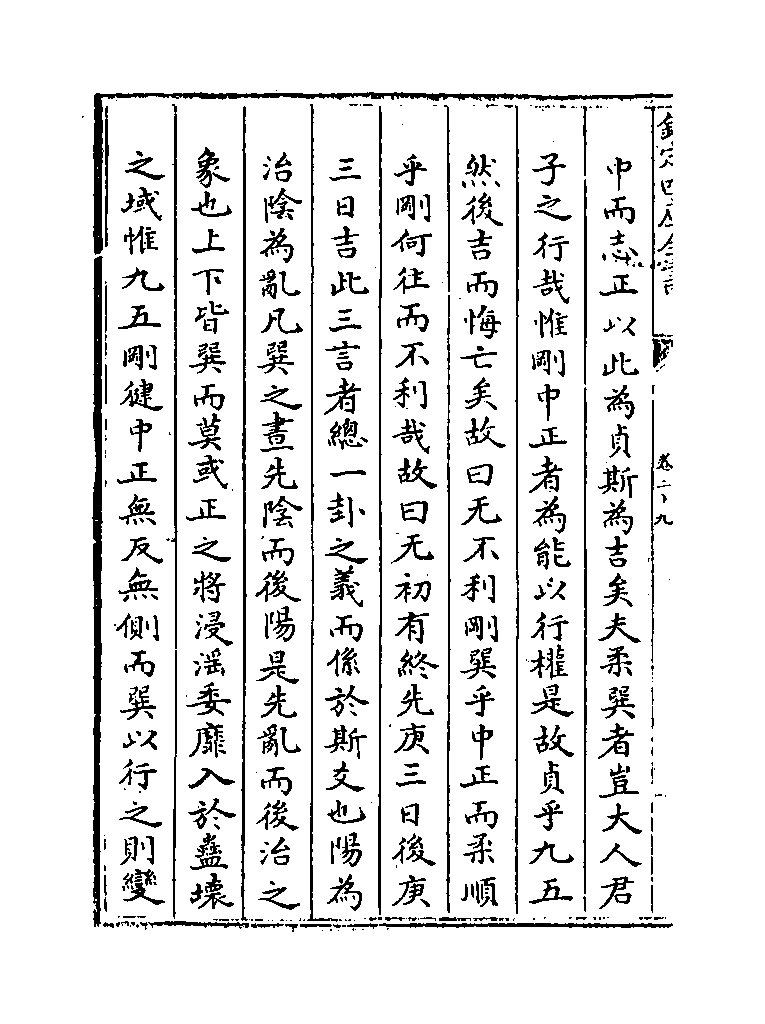 欽定四庫全書
卷二十九
中而志正以此為貞斯為吉矣夫柔巽者豈大人君
子之行哉惟剛中正者為能以行權是故貞乎九五
然後吉而悔亡矣故曰无不利剛巽乎中正而柔順
乎剛何往而不利哉故曰无初有終先庚三日後庚
三日吉此三言者總一卦之義而係於斯爻也陽為
治陰為亂凡巽之晝先陰而後陽是先亂而後治之
象也上下皆巽而莫或正之將浸淫委靡入於蠱壞
之域惟九五剛健中正無反無側而巽以行之則變